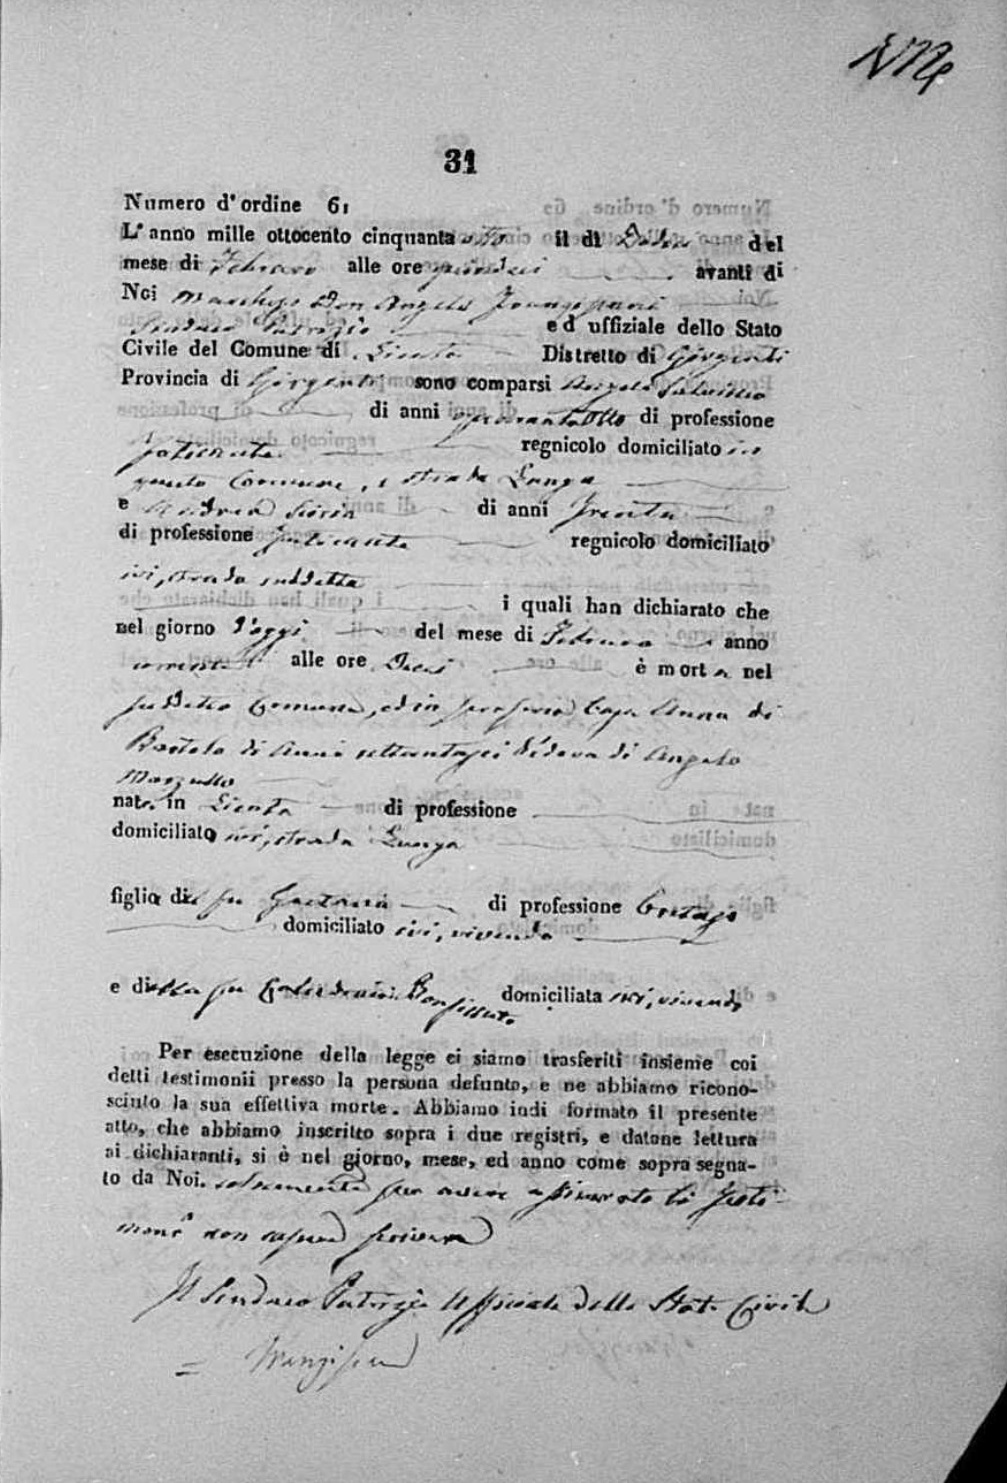 31
Numero d'ordine 61
L'anno mille ottocento cinquanta otto il dì Dodeci del
mese di Febraro alle ore quindeci avanti di
Noi Marchese Don Angelo Frangipani
Sindaco Patrizio ed uffiziale dello Stato
Civile del Comune di Licata Distretto di Girgenti
Provincia di Girgenti sono comparsi Angelo
di anni quarantaotto di professione
faticante regnicolo domiciliato in
questo Comune, strada Lunga
e Andrea di anni Trenta
di professione faticante regnicolo domiciliato
ivi, strada suddetta
i quali han dichiarato che
nel giorno d'oggi del mese di Febraro anno
corrente alle ore Dieci è morta nel
suddetto Comune, ed in propria Casa Anna di
Bartolo di anni settantasei Vedova di Angelo
Marzullo
nata in Licata di professione
domiciliata ivi, strada Lunga
figlia del fu Gaetano di professione Bordgo
domiciliato ivi, vivendo
e della fu domiciliata ivi, vivendo
Per esecuzione della legge ci siamo trasferiti insieme coi
detti testimonii presso la persona defunta, e ne abbiamo ricono-
sciuto la sua effettiva morte. Abbiamo indi formato il presente
atto, che abbiamo inscritto sopra i due registri, e datone lettura
ai dichiaranti, si è nel giorno, mese, ed anno come sopra segna-
to da Noi. solamente per avere assicurato li Testi-
moni non sapere scrivere
Il Sindaco Patrizio Uffiziale dello Stato Civile
Frangipani